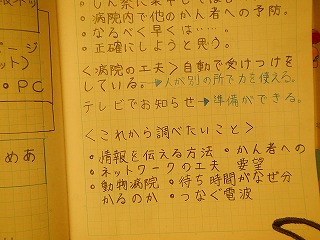 ページ
ット)
・PC
めあ
・病院内で他のかん者への予防。
・なるべく早くは‥‥。
・正確にしようと思う。
<病院の工夫>自動で受けつけを
している。→人が別の所で力を使える。
テレビでお知らせ→準備ができる。
<これから調べたいこと>
・情報を伝える方法 ・かん者への
・ネットワークの工夫 要望
・動物病院 ・待ち時間がなぜ分
かるのか ・つなぐ電波